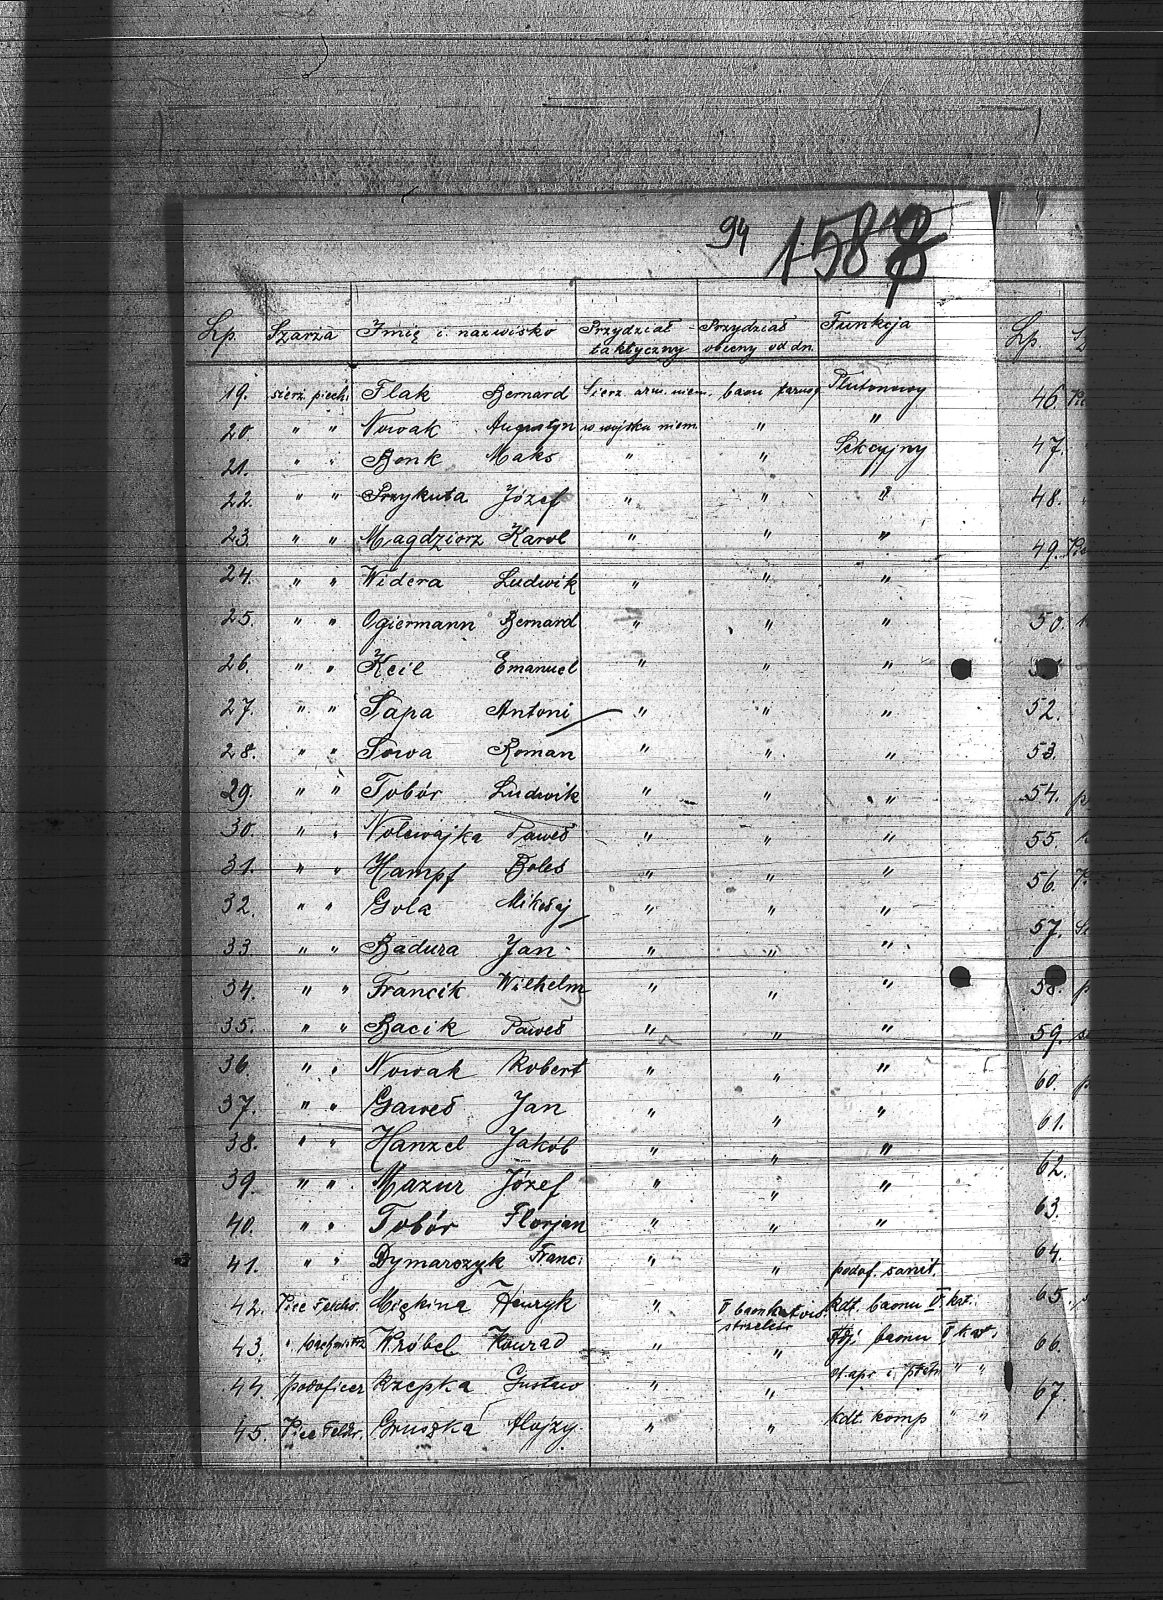 94 158
Lp. Szarża Imię i nazwisko Przydział taktyczny Przydział obecny od dn. Funkcja Lp.
19. sierż. piech. Flak Bernard Sierż. arm. niem. baon Plutonowy 46.
20 " " Nowak Augustyn w wojsku niem. " "
21. " " Bonk Maks " " Sekcyjny 47.
22. " " Przykuta Józef " " " 48.
23. " " Magdziorz Karol " " " 49.
24. " " Widera Ludwik " " "
25. " " Ogiermann Bernard " " " 50.
26. " " Keil Emanuel " " "
27. " " Sapa Antoni " " " 52.
28. " " Sowa Roman " " " 53.
29. " " Tobór Ludwik " " " 54.
30. " " Nolewajka Paweł " " " 55.
31. " " Hampf Boles " " " 56.
32. " " Gola Mikołaj " " "
33 " " Badura Jan " " " 57.
34. " " Francik Wilhelm " " " 58.
35. " " Bacik Paweł " " " 59.
36. " " Nowak Robert " " " 60.
37. " " Gaweł Jan " " " 61.
38. " " Hanzel Jakób " " " 62.
39 " " Mazur Józef " " " 63.
40. " " Tobór Florjan " " "
41. " " Dymarczyk Franc. " " podof. sanit. 64.
42. Vice Feldw. Miękina Henryk " kdt. baonu 65.
43. " Wróbel Konrad " " baonu 66.
44. podoficer Rzepka Gustaw " " " " 67.
45. Vice Feldw. Gruszka Alojzy " " kdt. komp " "